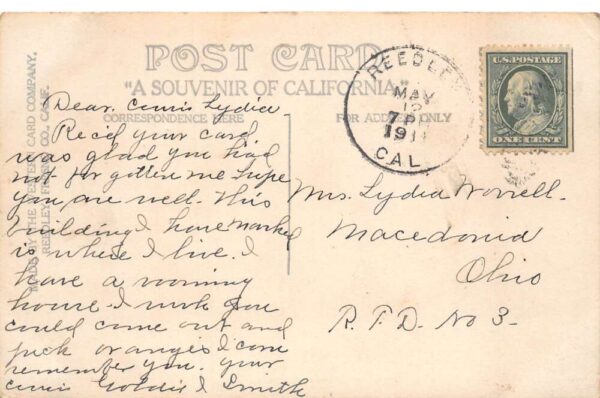 POST CARD
"A SOUVENIR OF CALIFORNIA"
CORRESPONDENCE HERE
FOR ADDRESS ONLY
MADE BY THE WESTERN CARD COMPANY,
REEDLEY, FRESNO CO., CALIF.
REEDLEY
MAY
12
7 PM
1911
CAL.
U.S. POSTAGE
ONE CENT
Dear Cusin Lydia
Rec'd your card
was glad you had
not for gotten me hope
you are well. This
building I have marked
is where I live. I
have a rooming
house. I wish you
could come out and
pick oranges I can
remember you. your
cusin Goldie I Smith
Mrs. Lydia Worrell.
Macedonia
Ohio
R.F.D. No 3-